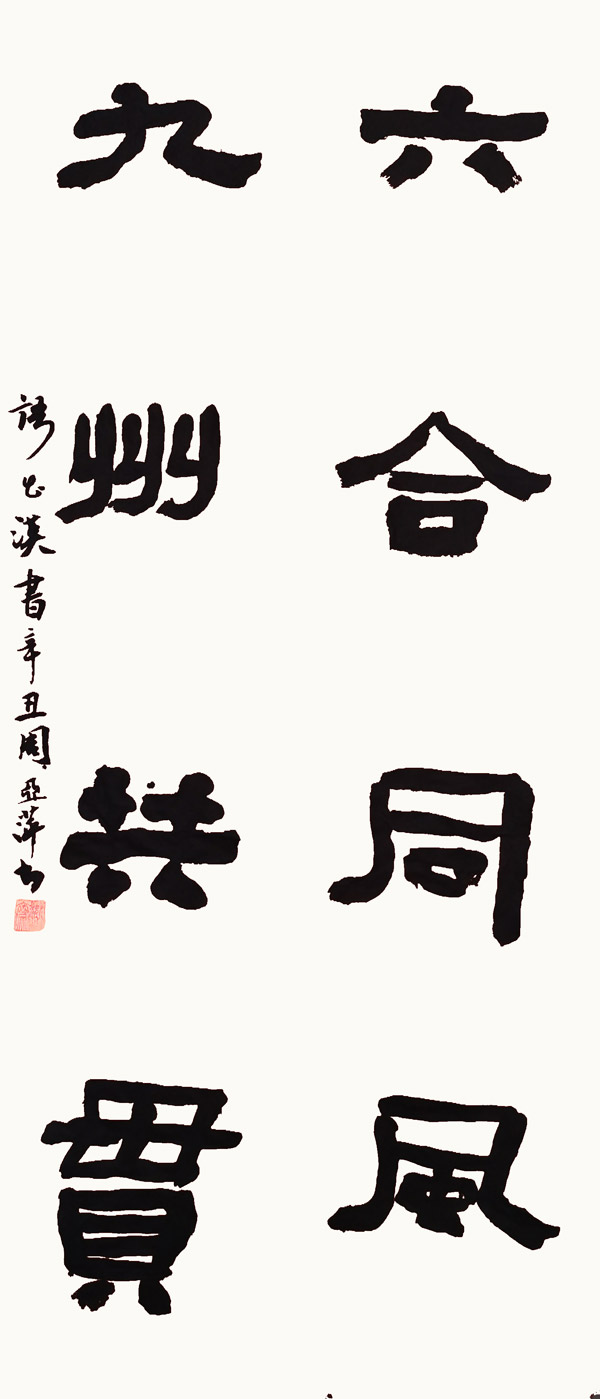 六合同風
九州共貫
語出漢書辛丑周亞萍书